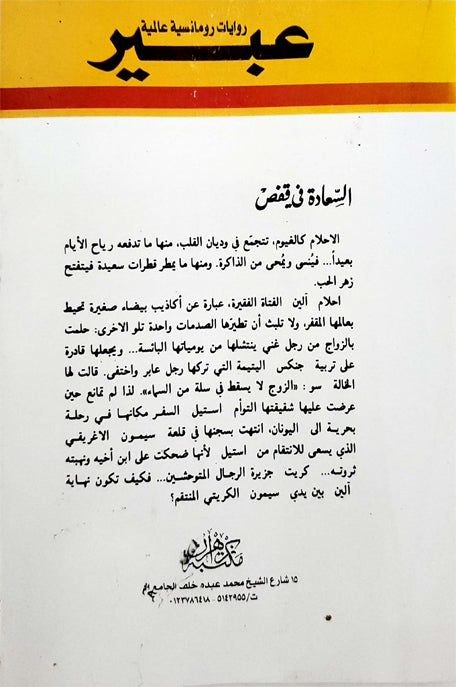 روايات رومانسية عالمية
عبير
السّعادة في قفص
الاحلام كالغيوم، تتجمّع في وديان القلب، منها ما تدفعه رياح الأيام
بعيداً... فيُنسى ويُمحى من الذاكرة. ومنها ما يمطر قطرات سعيدة فيتفتح
زهر الحب.
احلام ألين الفتاة الفقيرة، عبارة عن أكاذيب بيضاء صغيرة تحيط
بعالمها المقفر، ولا تلبث أن تطيّرها الصدمات واحدة تلو الاخرى: حلمت
بالزواج من رجل غني ينتشلها من يومياتها البائسة... ويجعلها قادرة
على تربية جنكس اليتيمة التي تركها رجل عابر واختفى. قالت لها
الخالة سو: «الزوج لا يسقط في سلة من السماء». لذا لم تمانع حين
عرضت عليها شقيقتها التوأم استيل السفر مكانها في رحلة
بحرية الى اليونان، انتهت بسجنها في قلعة سيمون الاغريقي
الذي يسعى للانتقام من استيل لأنها ضحكت على ابن أخيه ونهبته
ثروته... كريت جزيرة الرجال المتوحشين... فكيف تكون نهاية
ألين بين يدي سيمون الكريتي المنتقم؟
مكتبة زهران
١٥ شارع الشيخ محمد عبده خلف الجامع
ت/٥١٤٢٩٥٥ - ٠١٢٣٧٨٦٤١٨